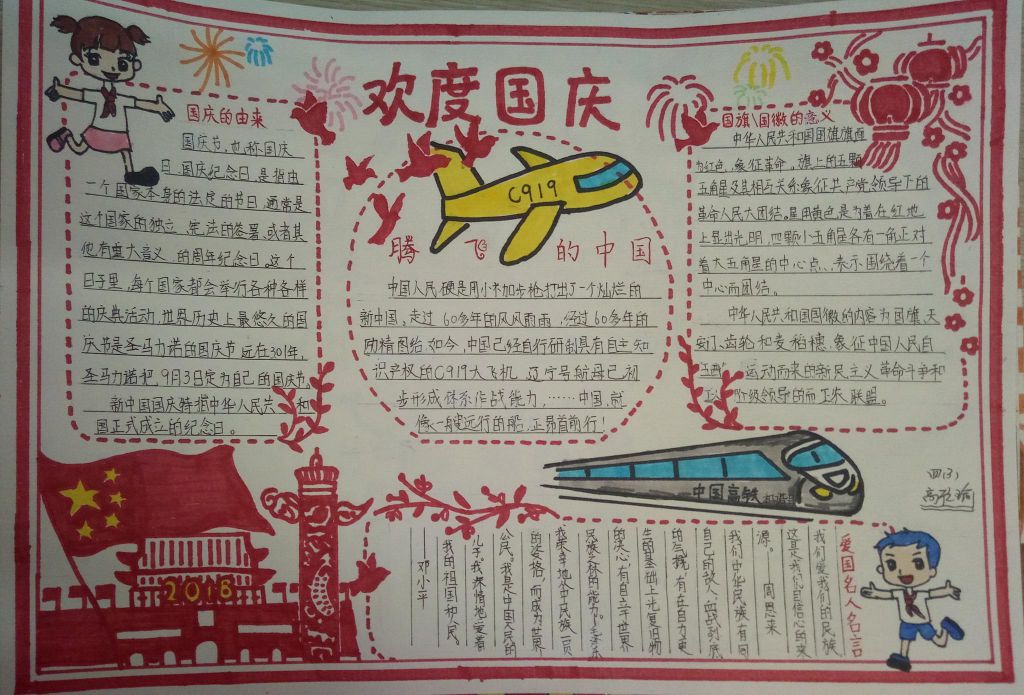 欢度国庆
国庆的由来
国庆节,也称国庆
日、国庆纪念日,是指由
一个国家本身的法定的节日,通常是
这个国家的独立、宪法的签署、或者其
他有重大意义的周年纪念日。这个
日子里,每个国家都会举行各种各样
的庆典活动,世界历史上最悠久的国
庆节是圣马力诺的国庆节,远在301年,
圣马力诺把9月3日定为自己的国庆节。
新中国国庆特指中华人民共和
国正式成立的纪念日。
C919
腾飞的中国
中国人民硬是用小米加步枪打出了一个灿烂的
新中国。走过60多年的风风雨雨,经过60多年的
励精图治,如今,中国已经自行研制具有自主知
识产权的C919大飞机,辽宁号航母已初
步形成体系作战能力,……中国,就
像一艘远行的船,正昂首前行!
国旗、国徽的意义
中华人民共和国国旗旗面
为红色,象征革命。旗上的五颗
五角星及其相互关系象征共产党领导下的
革命人民大团结。星用黄色是为着在红地
上显出光明,四颗小五角星各有一角正对
着大五角星的中心点,表示围绕着一个
中心而团结。
中华人民共和国国徽的内容为国旗、天
安门、齿轮和麦稻穗,象征中国人民自
五四运动而来的新民主义革命斗争和
工人阶级领导的
联盟。
四(3)
高
中国高铁
2018
爱国名人名言
我们爱我们的民族,
这是我们自信心的来
源。 周恩来
我们中华民族有同
自己的敌人血战到底
的气概,有在自力更
生的基础上光复旧物
的决心,有自立于世界
民族之林的能力。毛泽东
我荣幸地从中华民族一员
的资格,而成为世界
公民。我是中国人民的
儿子。我深情地爱着
我的祖国和人民。
邓小平